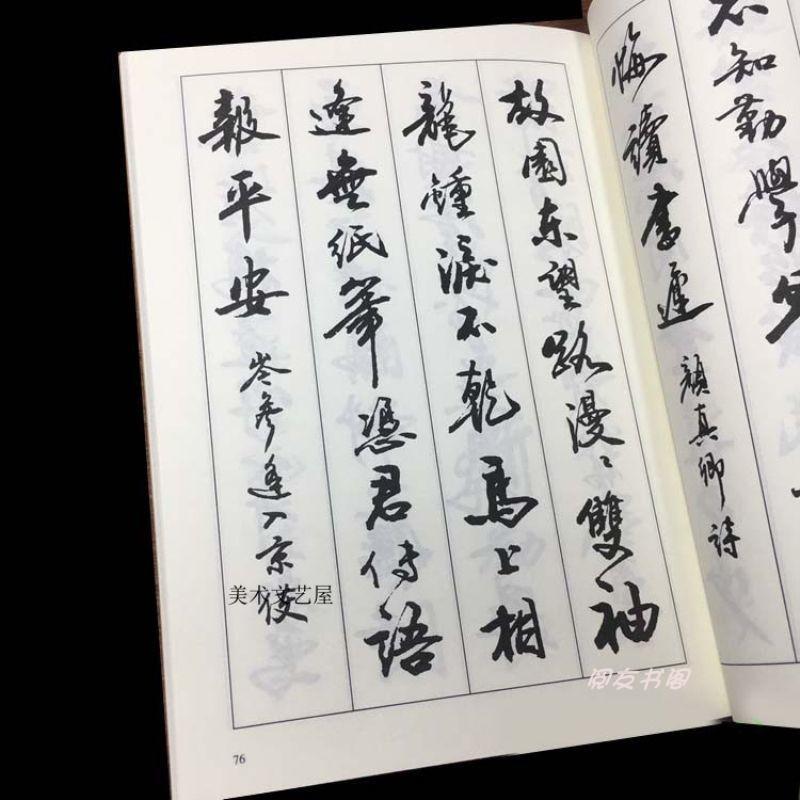 故園东望路漫々雙袖
龍鍾淚不乾馬上相
逢無紙筆憑君传語
報平安 岑參逢入京使
76
不知勤學
悔讀書遲 顏真卿詩
美术文艺屋
阅友书阁